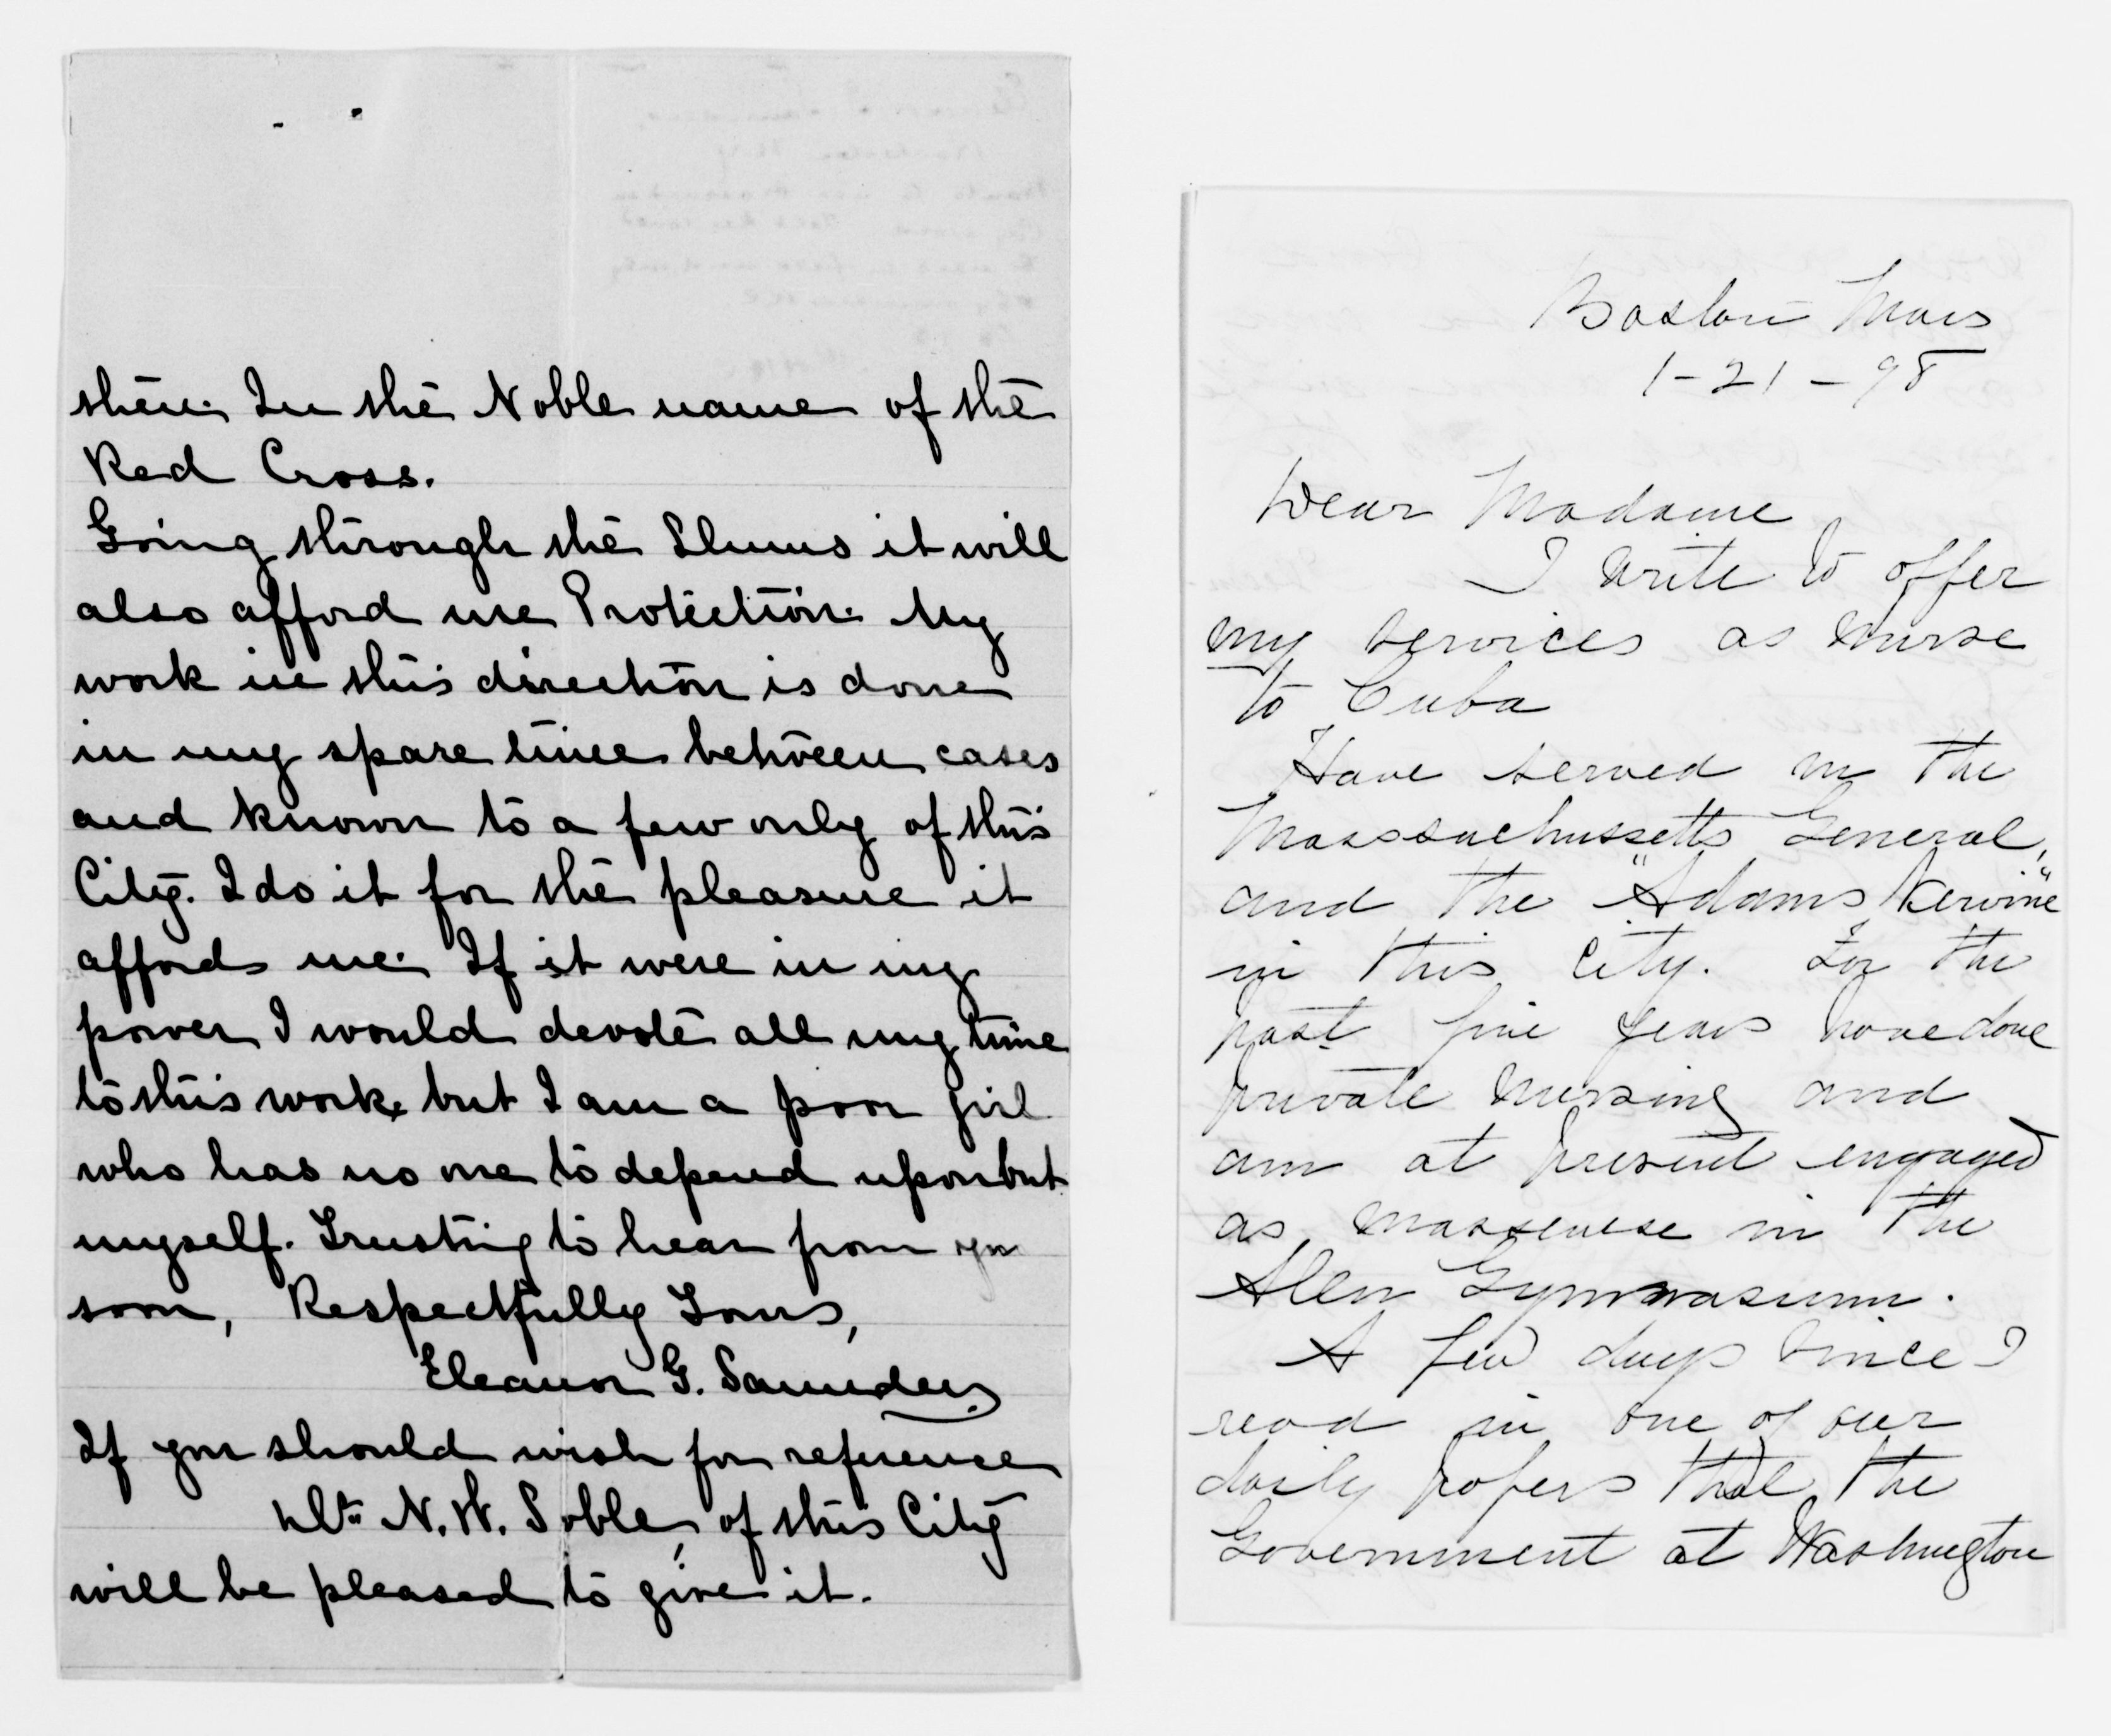 them. In the Noble name of the
Red Cross.
Going through the Slums it will
also afford me Protection. My
work in this direction is done
in my spare time between cases
and known to a few only of this
City. I do it for the pleasure it
affords me. If it were in my
power I would devote all my time
to this work, but I am a poor girl
who has no one to depend upon but
myself. Trusting to hear from you
soon, Respectfully Yours,
Eleanor G. Saunders
If you should wish for reference
N. W. Soble, of this City
will be pleased to give it.
Boston Mass
1-21-98
Dear Madame
I write to offer
my services as nurse
to Cuba
Have served in the
Massachussetts General,
and the "Adams Nervine"
in this city. For the
past five years have done
private nursing and
am at present engaged
as masseuese in the
Allen Gymnasium.
A few days since I
read in one of our
daily papers that the
Government at Washington